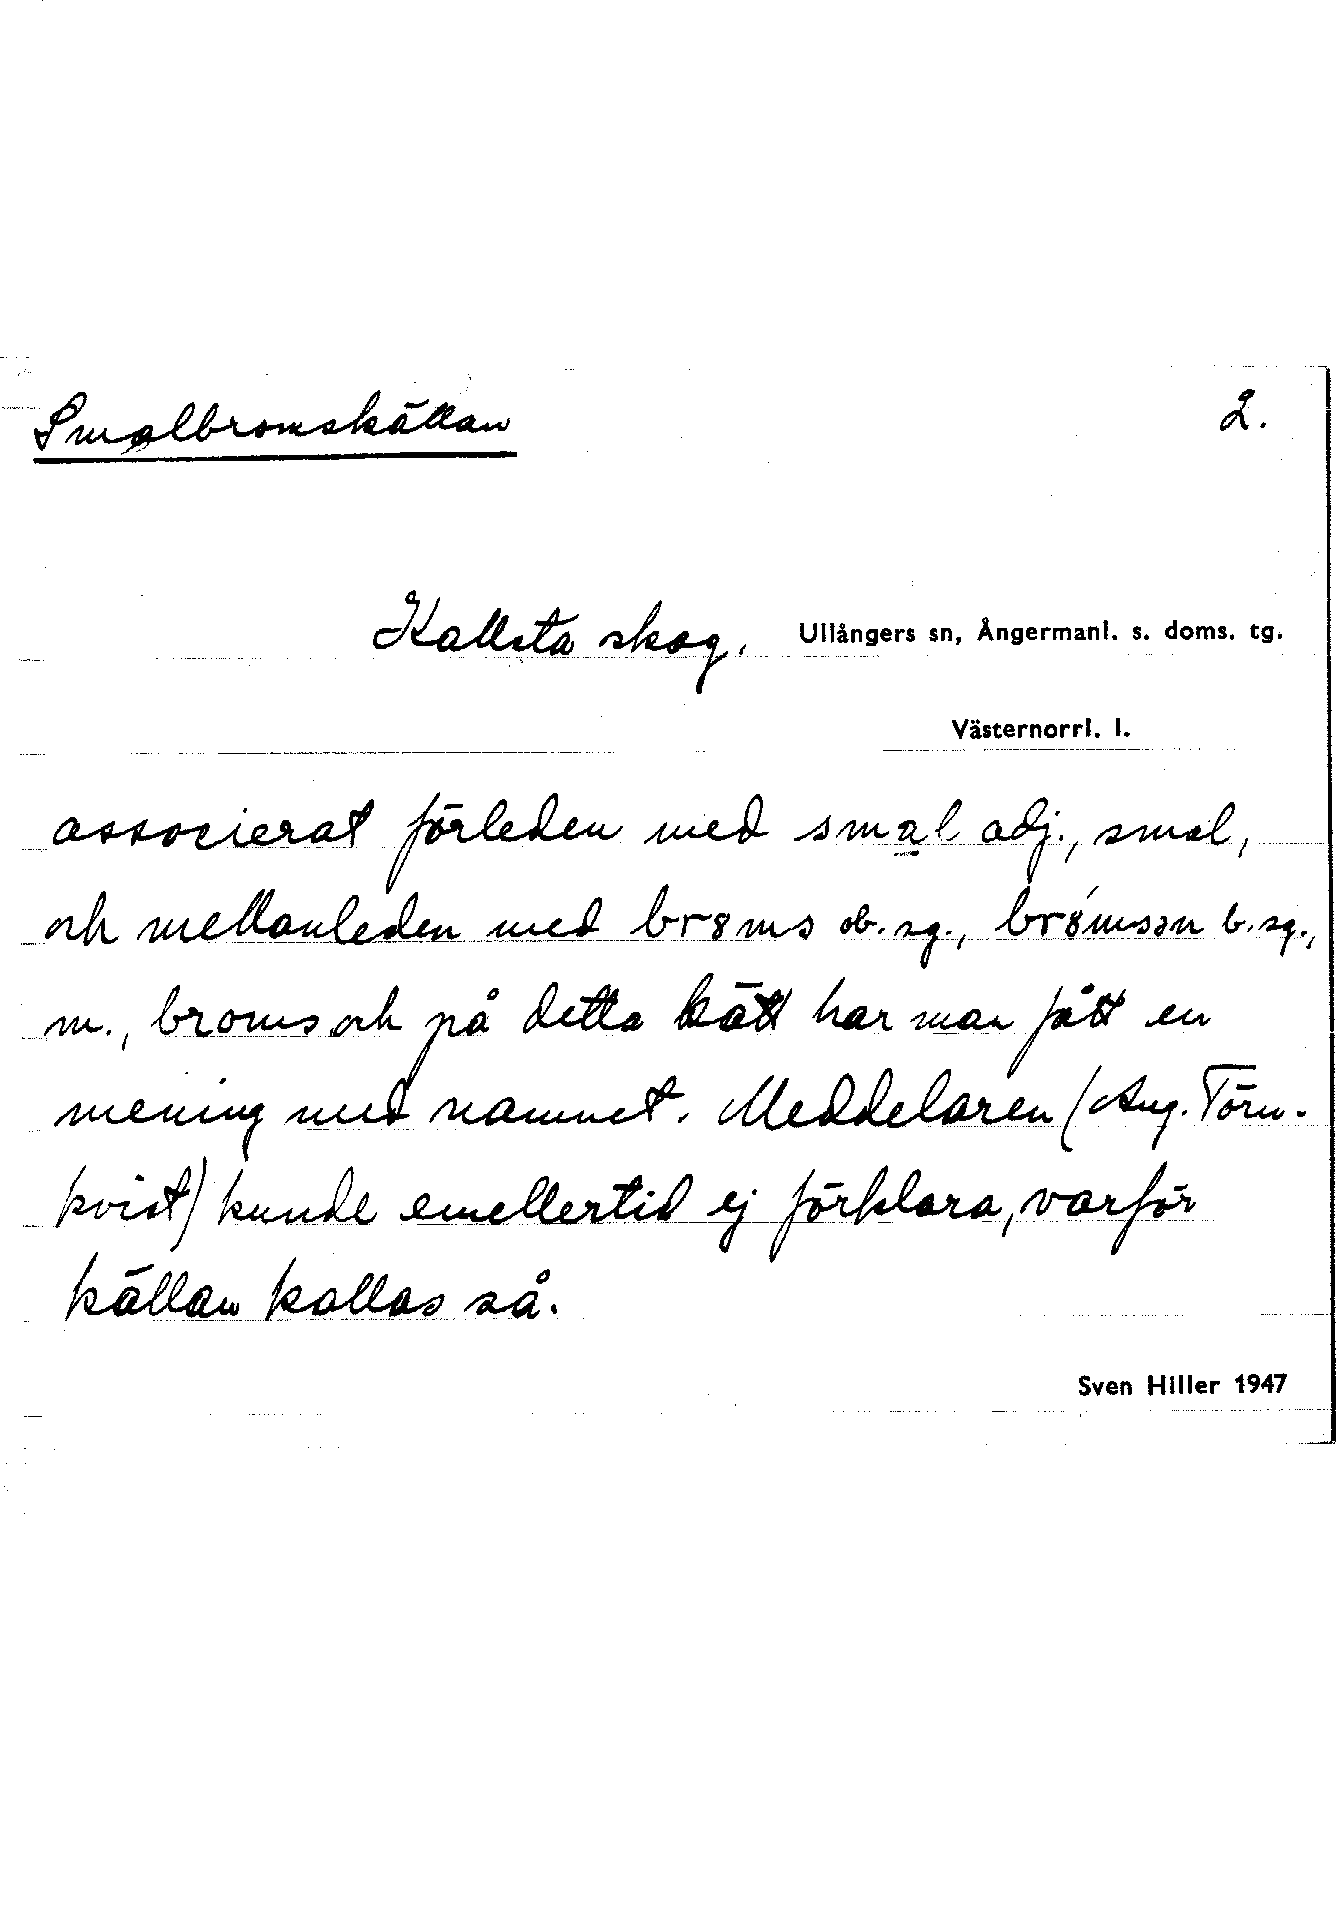 Smalbromskällan
2.
Kallsta skog. Ullångers sn, Ångermanl. s. doms. tg.
Västernorrl. l.
associerat förleden med smal adj., smal,
och mellanleden med br8ms ob. sg., br8́msən b. sg.,
m., broms och på detta sätt har man fått en
mening med namnet. Meddelaren (Aug. Törn-
kvist) kunde emellertid ej förklara, varför
källan kallas så.
Sven Hiller 1947